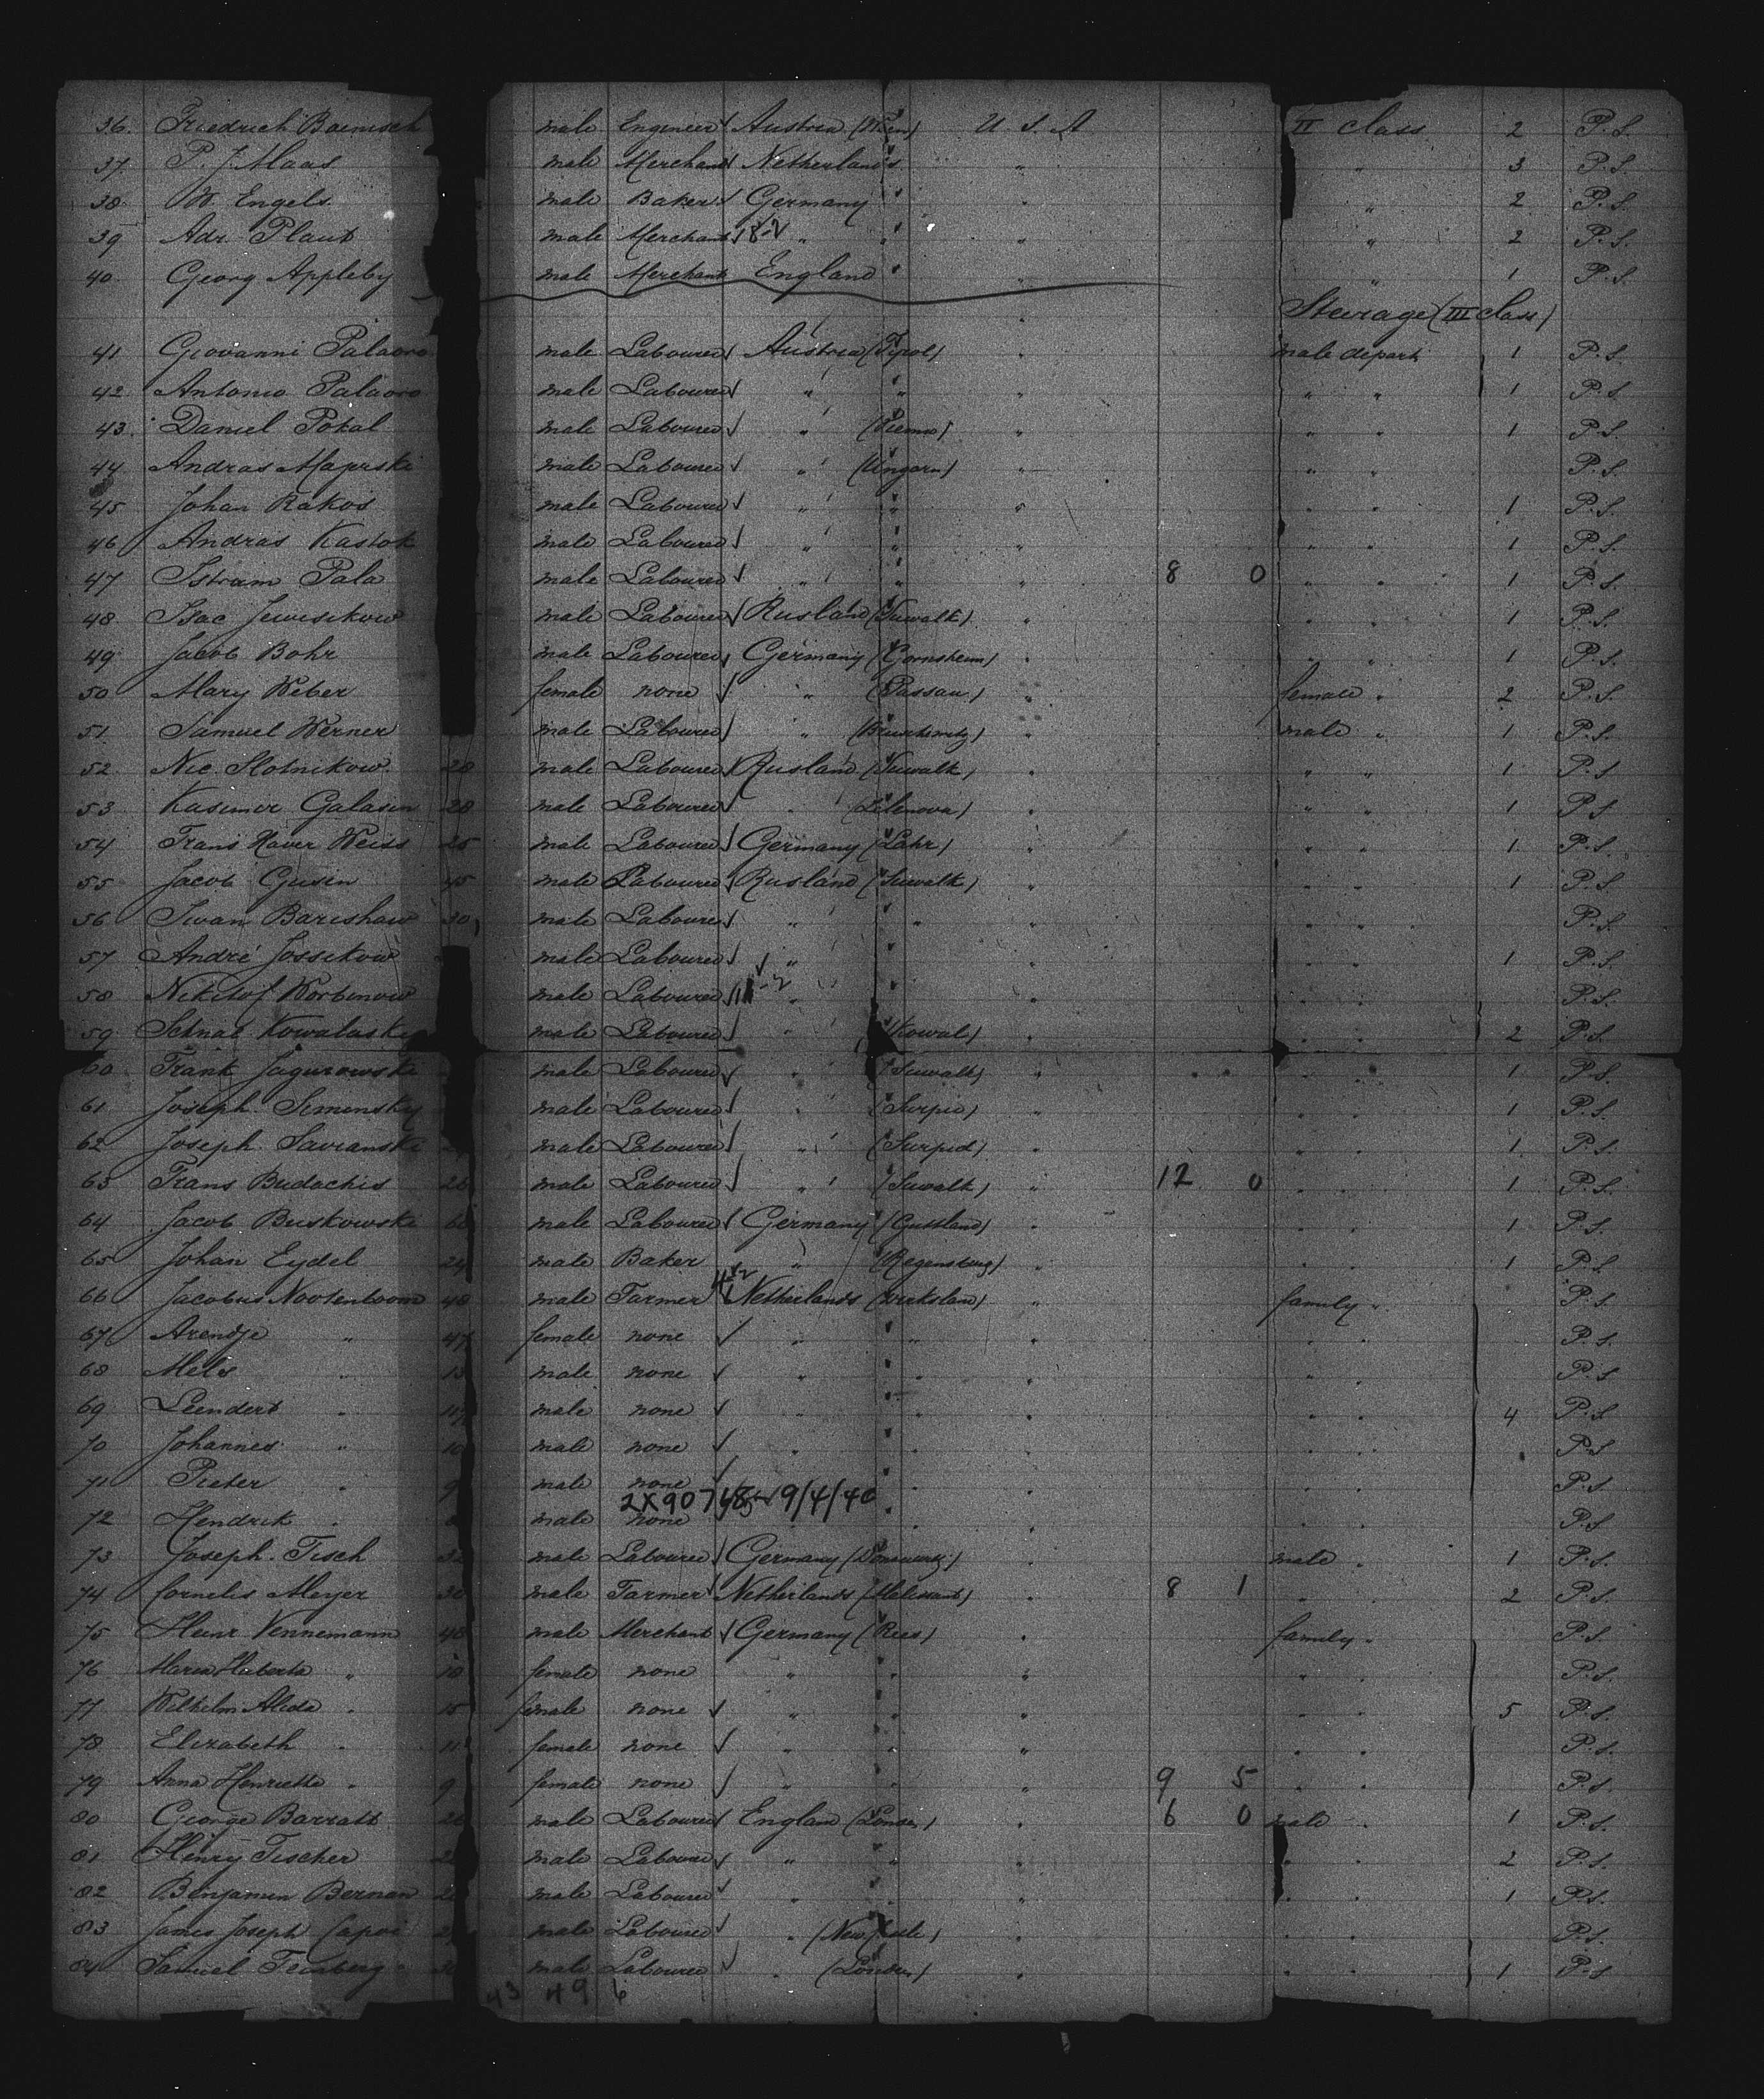 36. Friedrich Baenisch male Engineer Austria (Wien) U. S. A II class 2 P.S.
37. P. J. Maas male Merchant Netherlands " " 3 P.S.
38. W. Engels male Baker Germany " " 2 P.S.
39 Adr. Plaut male Merchant 18-2 " " " 2 P.S.
40 Georg Appleby male Merchant England " " 1 P.S.
Steerage (III class)
41 Giovanni Palaoro male Labourer Austria (Tyrol) " male depart. 1 P.S.
42 Antonio Palaoro male Labourer " " " " " 1 P.S.
43. Daniel Pokal male Labourer " " " " 1 P.S.
44 Andras male Labourer " (Ungarn) " " " P.S.
45 Johan Rakos male Labourer " " " " " 1 P.S.
46 Andras Kastok male Labourer " " " " " 1 P.S.
47 Pala male Labourer " " " 8 0 " " 1 P.S.
48 Isac male Labourer Rusland (Suwalk) " " " 1 P.S.
49 Jacob Bohr male Labourer Germany (Gornsheim) " " " 1 P.S.
50 Mary Weber female none " (Passau) " female " 2 P.S.
51 Samuel Werner male Labourer " " male " 1 P.S.
52 Nic. Slotnikow 28 male Labourer Rusland (Suwalk) " " " 1 P.S
53 Kasimir Galasin 28 male Labourer " " " " 1 P.S
54 Frans Xaver Weiss 25 male Labourer Germany (Lahr) " " " 1 P.S.
55 Jacob Gusin 45 male Labourer Rusland (Suwalk) " " " 1 P.S.
56 Iwan Barishaw 30 male Labourer " " " " P.S.
57 André Jossikow male Labourer " " " " 1 P.S.
58 Nikitof Worbinow male Labourer 11-2 " " " " P.S.
59 Kowalaski male Labourer " (Kowal) " " " 2 P.S.
60 Frank Jagurowski male Labourer " (Suwalk) " " " 1 P.S.
61 Joseph Simensky male Labourer " " " " 1 P.S.
62 Joseph Savianski male Labourer " " " " 1 P.S.
63 Frans Budachis 26 male Labourer " (Suwalk) " 12 0 " " 1 P.S.
64 Jacob Buskowski male Labourer Germany " " " 1 P.S.
65 Johan Eydel 24 male Baker " (Regensburg) " " " 1 P.S
66 Jacobus Nootenboom 48 male Farmer Netherlands (Dirksland) " family " P.S.
67 Arendje " 47 female none " " " " " P.S.
68 Mels " 13 male none " " " " " P.S
69 Leendert " 11 male none " " " " " 4 P.S
70 Johannes " 10 male none " " " " " P.S
71 Pieter " 9 male none " " " " P.S
2X90768 9/4/40
72 Hendrik " male none " " " " P.S
73 Joseph Fisch 32 male Labourer Germany " male " 1 P.S.
74 Cornelis Meyer 30 male Farmer Netherlands (Melissant) " 8 1 " " 2 P.S.
75 Heinr. Vennemann 48 male Merchant Germany (Rees) " family " P.S.
76 Maria Huberta " 18 female none " " " " " P.S.
77 Wilhelm. Aleida " 15 female none " " " " " 5 P.S.
78 Elizabeth " 11 female none " " " " " P.S.
79 Anna Henriette " 9 female none " " " 9 5 " " P.S.
80 George Barratt male Labourer England (London) " 6 0 male " 1 P.S.
81 Henry Fischer male Labourer " " " " " 2 P.S.
82 Benjamin Bernan male Labourer " " " " 1 P.S.
83 James Joseph male Labourer " " " " P.S.
84 Samuel male Labourer " (London) " " " 1 P.S
43 49 6